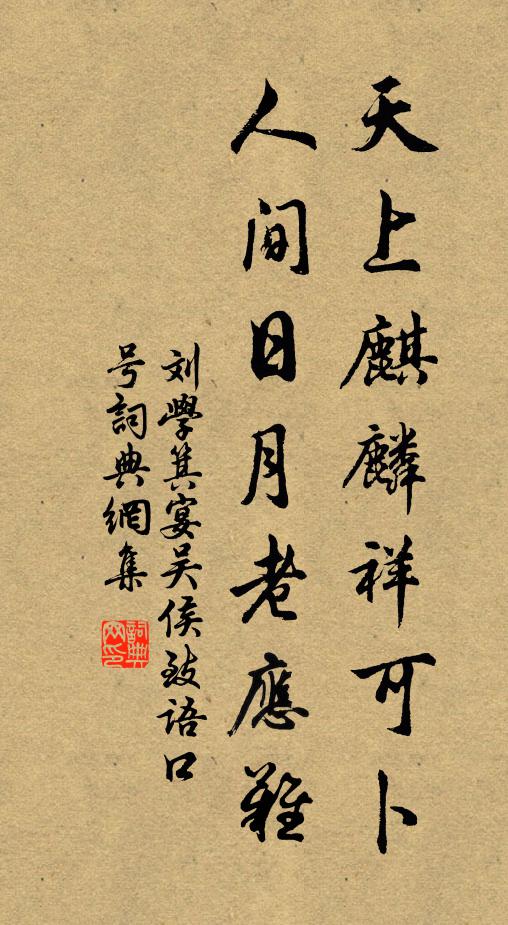 天上麒麟祥可卜
人间日月老應難
刘學箕宴吴侯致语口
号詞典網集
詞典
网印